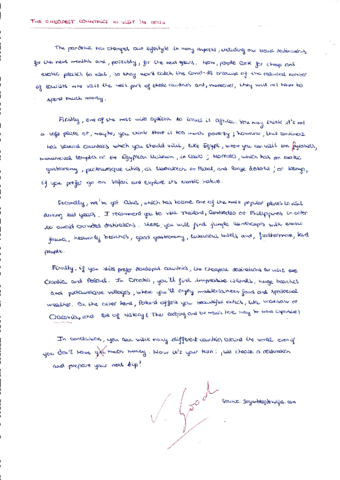 THE CHEAPEST COUNTRIES TO VISIT IN 2021
The pandemic has changed our lifestyle in many aspects, including our travel destinations
for the next months and, possibly, for the next years. Now, people look for cheap and
exotic places to visit, so they won't catch the Covid-19 because of the reduced number
of tourists who visit the most part of these countries and, moreover, they will not have to
spend much money.
Firstly, one of the most options to travel is Africa. You may think it's not
a safe place or, maybe, you think that it has much poverty; however, this continent
has several countries which you should visit, like Egypt, where you can visit the pyramids,
numerous temples or the Egyptian Museum, in Cairo; Morocco, which has an exotic
gastronomy, picturesque cities, as Marrakech or Rabat, and large deserts; or Kenya,
if you prefer go on safari and explore its exotic nature.
Secondly, we've got Asia, which has become one of the most popular places to visit
during last years. I recommend you to visit Thailand, Cambodia or Philippines in order
to avoid crowded destinations. Here you will find jungle landscapes with exotic
fauna, heavenly beaches, good gastronomy, luxurious hotels and, furthermore, kind
people.
Finally, if you still prefer European countries, the cheapest destinations to visit are
Croatia and Poland. In Croatia, you'll find impressive islands, huge beaches
and picturesque villages, where you'll enjoy mediterranean food and splendid
weather. On the other hand, Poland offers you beautiful cities, like Warsaw or
Cracovia, and lots of history (Their lodging and technical love may be more expensive)
In conclusion, you can visit many different countries around the world even if
you don't have much money. Now it's your turn: choose a destination
and prepare your next trip!
Good
Source: